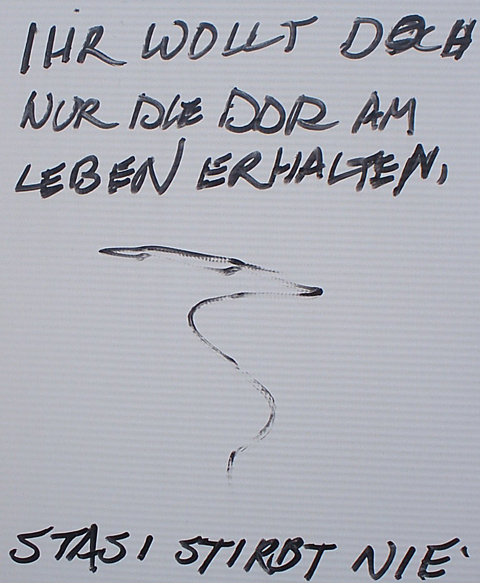 IHR WOLLT DOCH
NUR DIE DDR AM
LEBEN ERHALTEN,
STASI STIRBT NIE